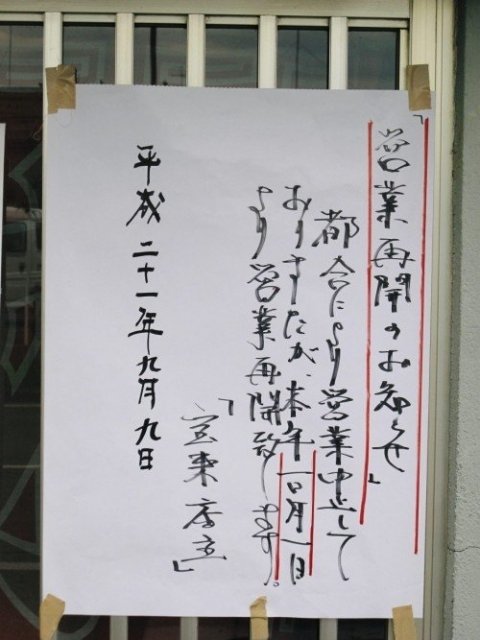 「営業再開のお知らせ」
都合により営業中止して
おりましたが、本年一〇月一日
より営業再開致します。
「宝来店主」
平成二十一年九月九日